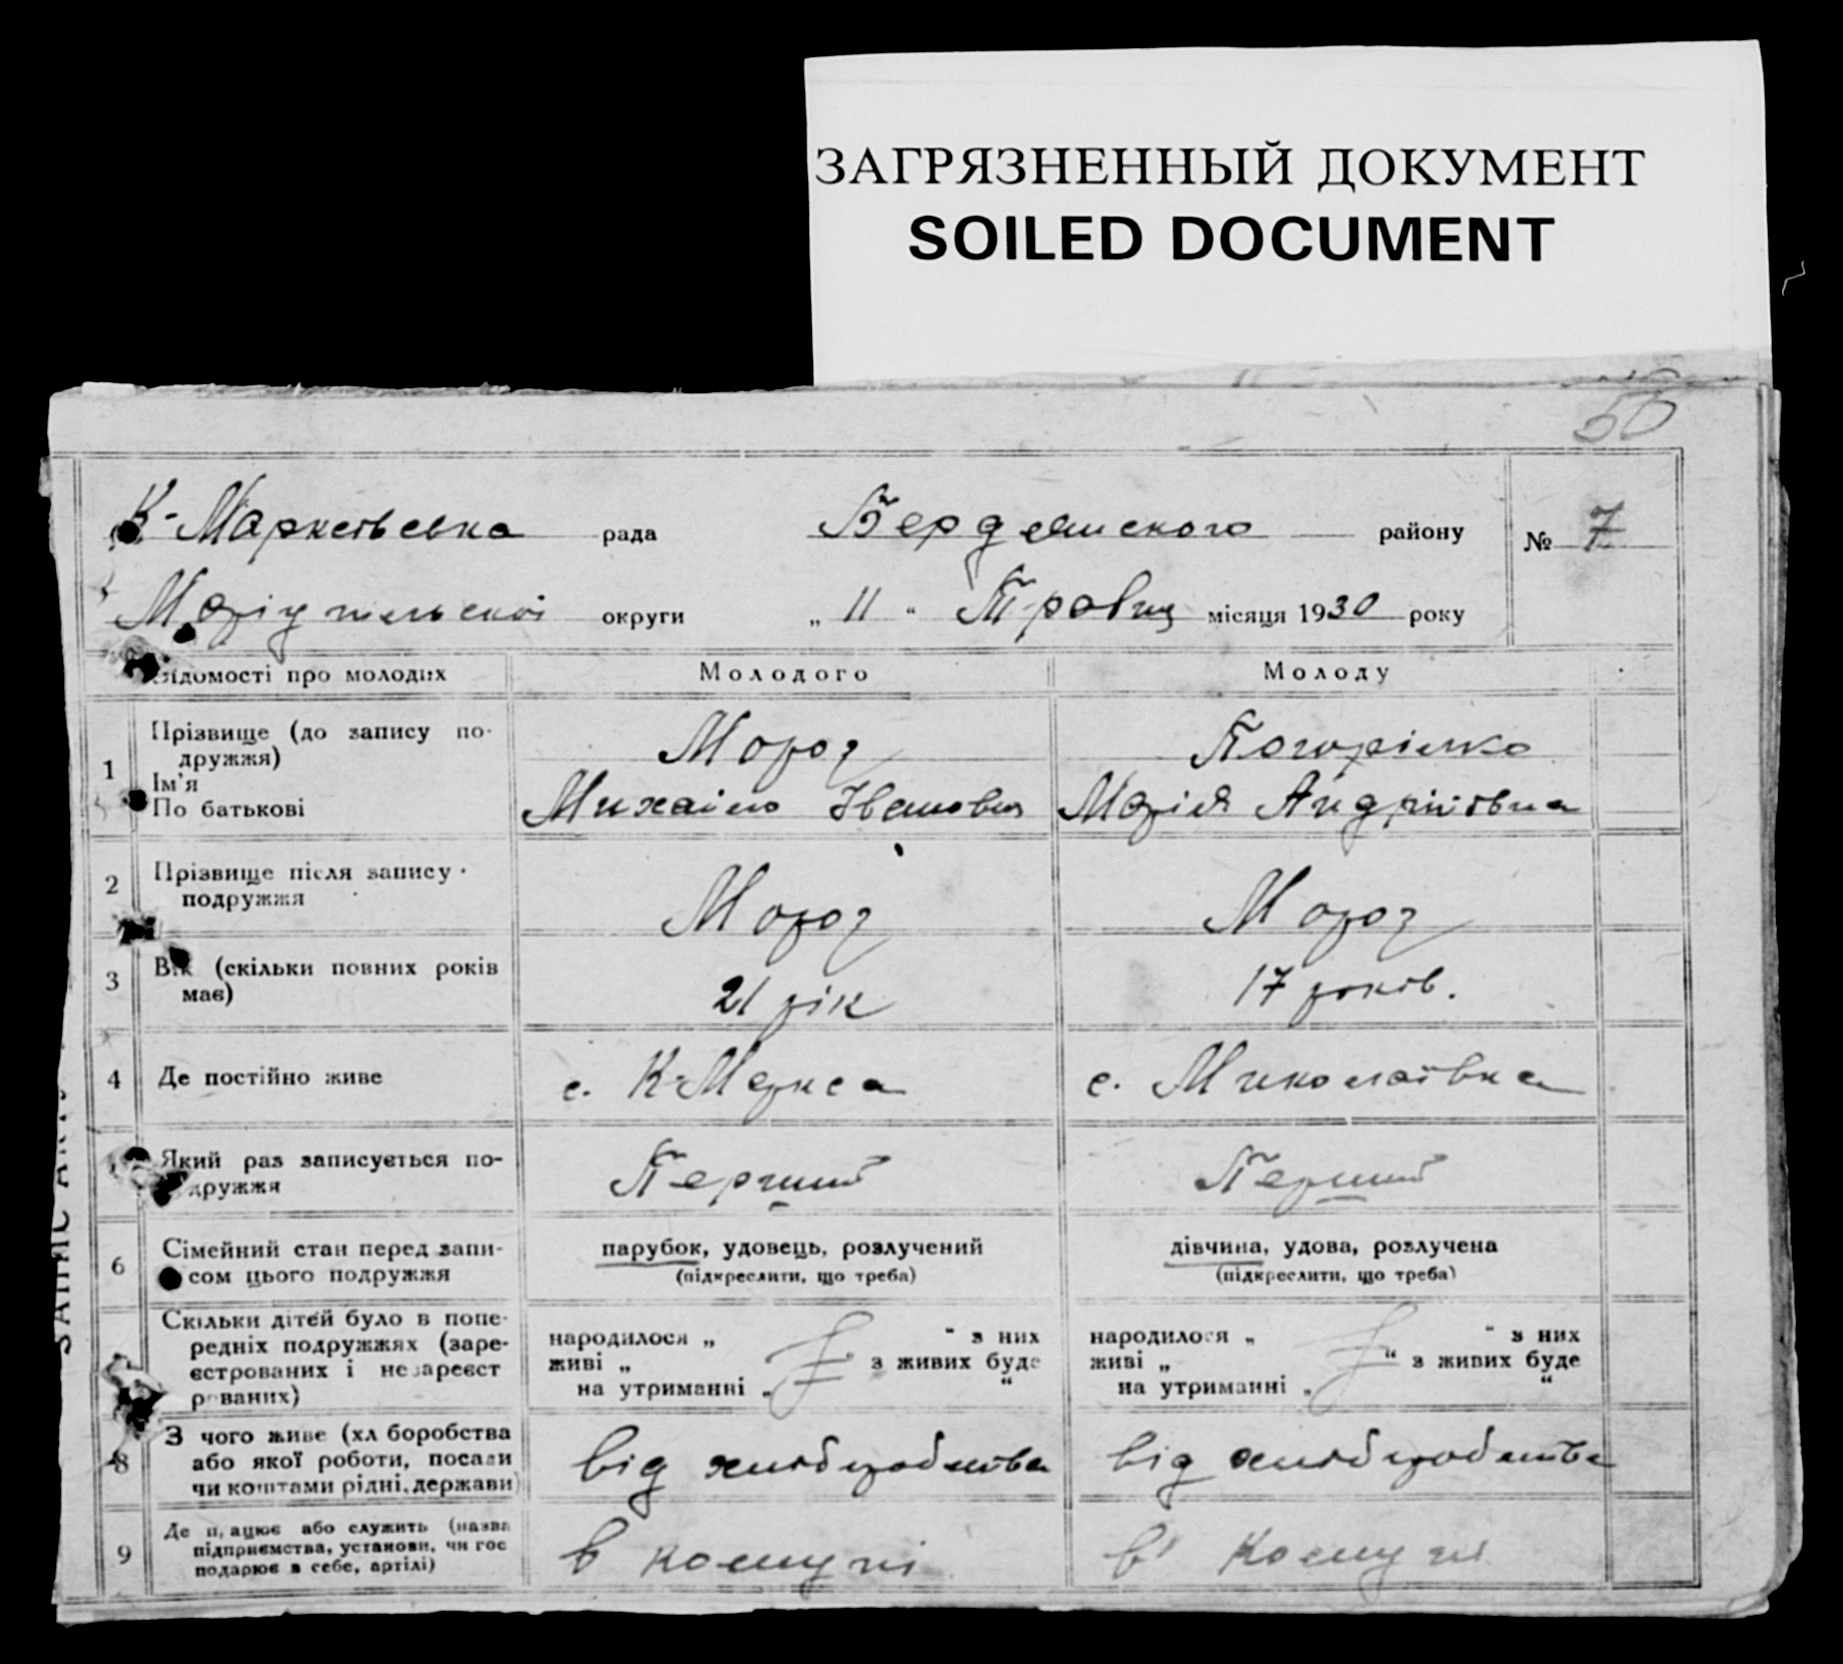 ЗАГРЯЗНЕННЫЙ ДОКУМЕНТ
SOILED DOCUMENT
50
К-Марксівська рада Бердянського району № 7
Маріупільської округи „ 11 “ Травня місяця 1930 року
Відомості про молодих Молодого Молоду
1 Прізвище (до запису по-
дружжя)
Ім'я
По батькові
Мороз
Михайло Іванович
Погорілко
Марія Андріївна
2 Прізвище після запису
подружжя
Мороз
Мороз
3 Вік (скільки повних років
має)
21 рік
17 років.
4 Де постійно живе
с. К-Маркса
с. Миколаївка
Який раз записується по-
дружжя
Перший
Перший
6 Сімейний стан перед запи-
сом цього подружжя
парубок, удовець, розлучений
(підкреслити, що треба)
дівчина, удова, розлучена
(підкреслити, що треба)
Скільки дітей було в попе-
редніх подружжях (заре-
єстрованих і незареєст
рованих)
народилося „ “ з них
живі „ з живих буде
на утриманні „ “
народилося „ “ з них
живі „ “ з живих буде
на утриманні „ “
8 З чого живе (хліборобства
або якої роботи, посади
чи коштами рідні, держави)
від хліборобства
від хліборобства
9 Де працює або служить (назва
підприємства, установи, чи гос
подарює в себе, артілі)
в комуні
в комуні
ЗАПИС АКТУ